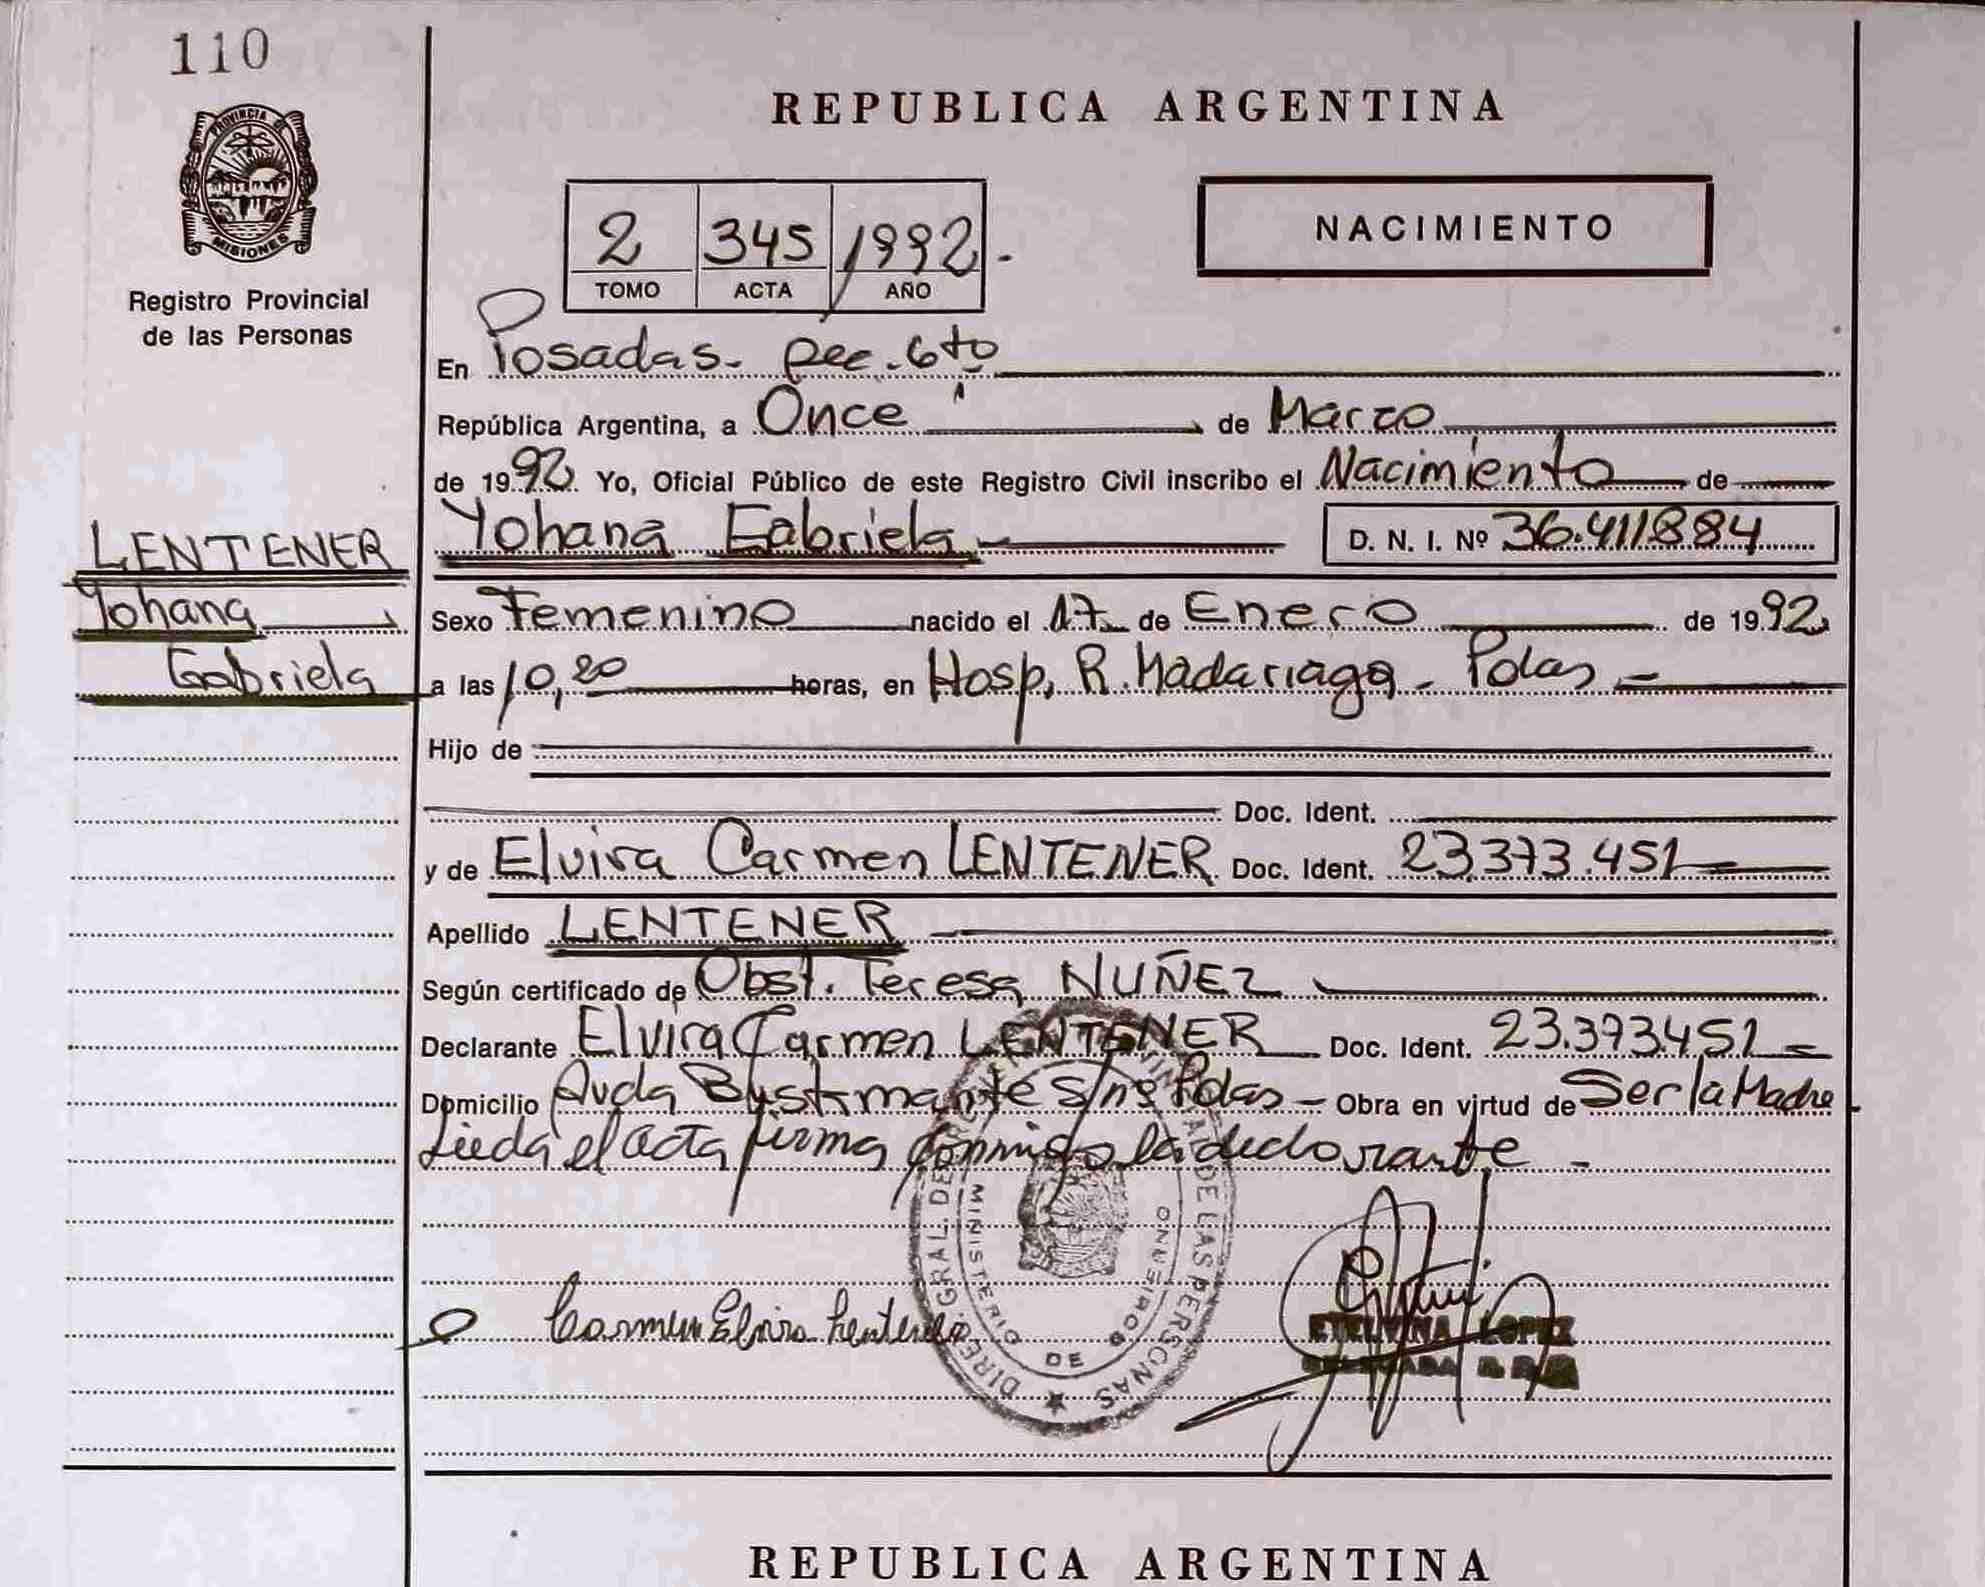 110
PROVINCIA DE
MISIONES
Registro Provincial
de las Personas
REPUBLICA ARGENTINA
2 345 1992.-
TOMO ACTA AÑO
NACIMIENTO
En Posadas- 6to
República Argentina, a Once de Marzo
de 1992 Yo, Oficial Público de este Registro Civil inscribo el Nacimiento de
LENTENER
Yohana Gabriela D. N. I. Nº 36.411884
Yohana
Gabriela
Sexo Femenino nacido el 17 de Enero de 1992
a las 10,20 horas, en Hosp. R. Madariaga - Pdas -
Hijo de
Doc. Ident.
y de Elvira Carmen LENTENER Doc. Ident. 23.373.451
Apellido LENTENER
Según certificado de Obst. Teresa NUÑEZ
Declarante Elvira Carmen LENTENER Doc. Ident. 23.373451
Domicilio Avda Bustamante s/nº Pdas - Obra en virtud de Ser la Madre
Lieda el acta firma conmigo la declarante -
DIREC. GRAL. DE LAS PERSONAS
MINISTERIO DE GOBIERNO
Carmen Elvira Lentener
ETELVINA LOPEZ
REPUBLICA ARGENTINA